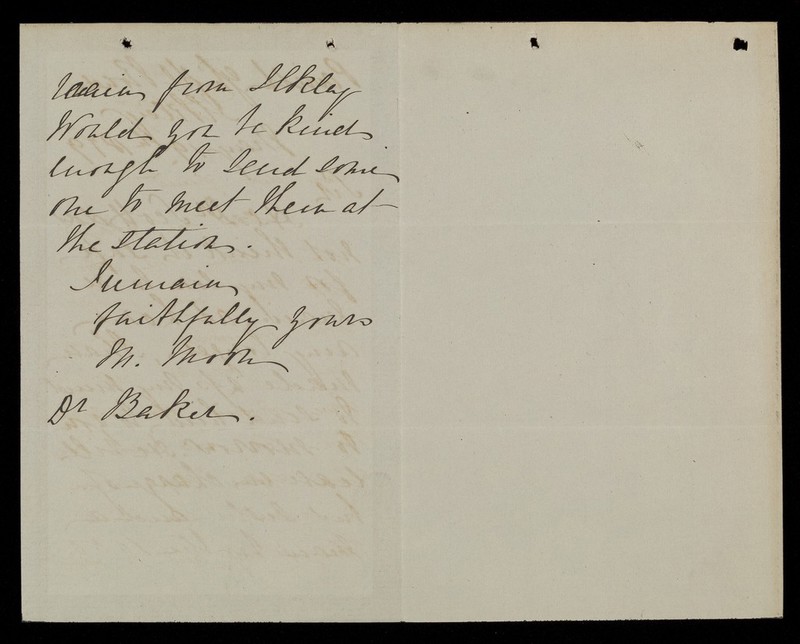 from Ilkley
Would you be kind
enough to send some
one to meet them at
the station.
I remain
faithfully yours
M. Moore
Dr Baker.